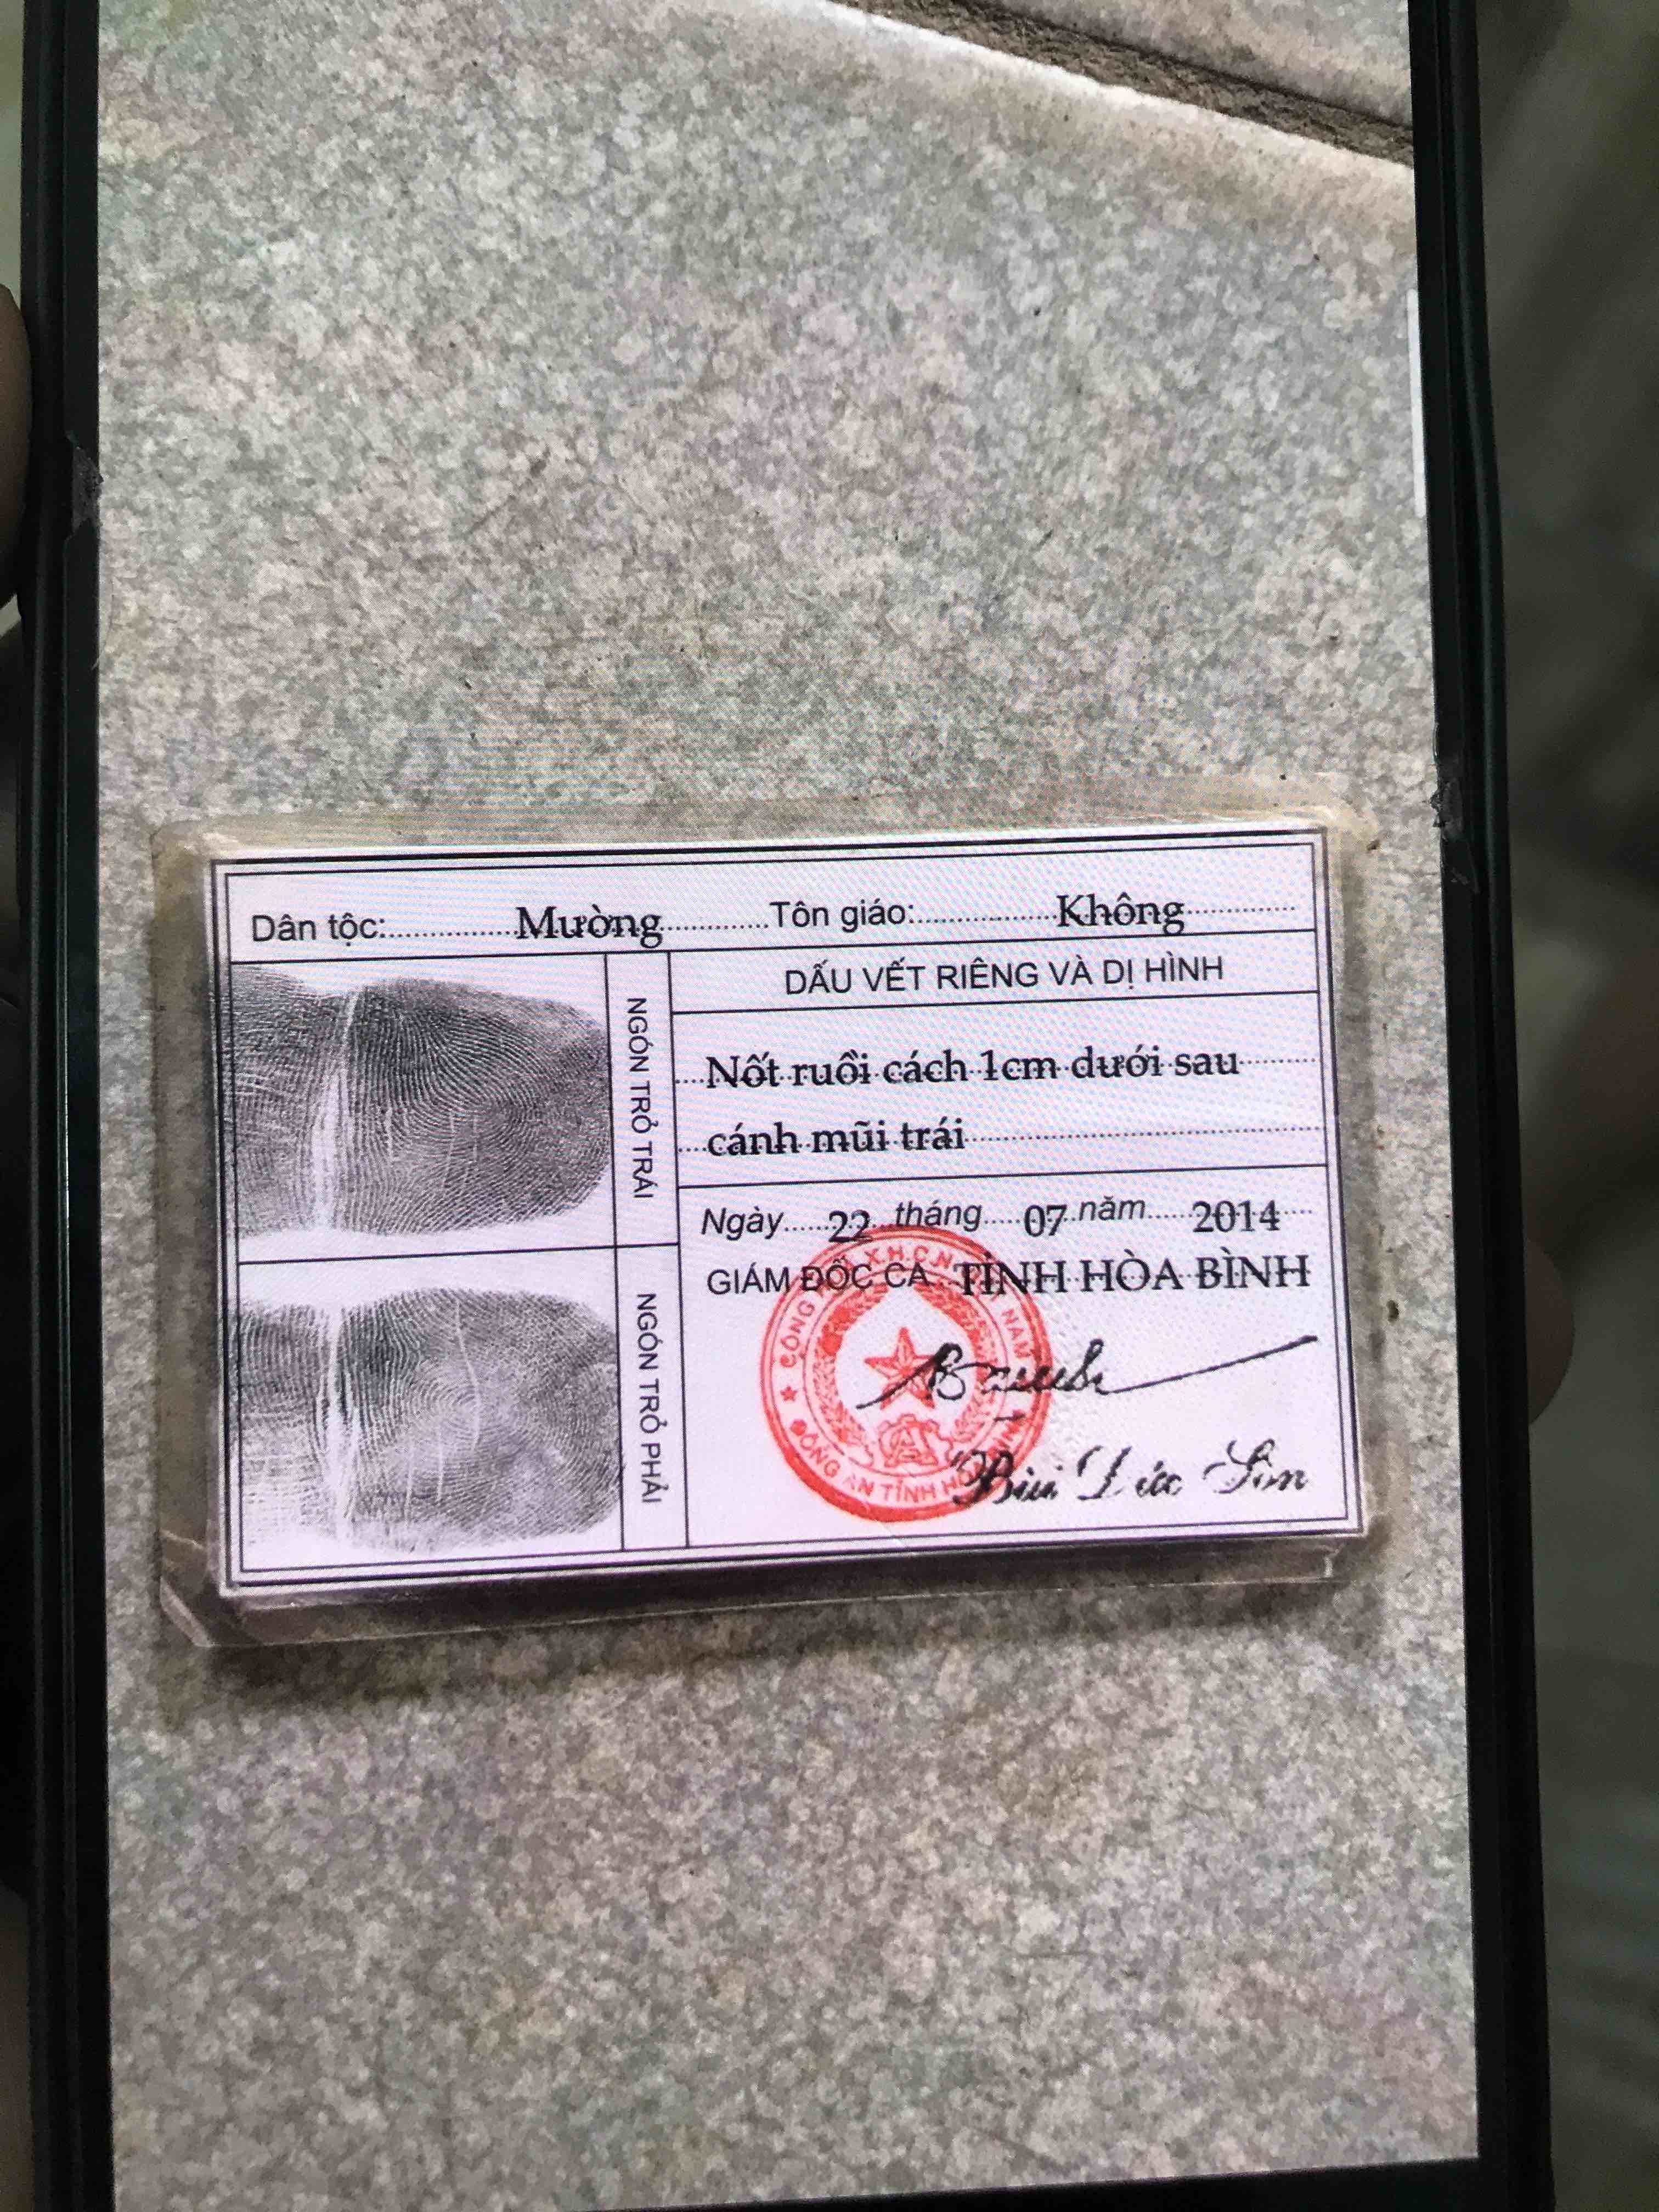 Dân tộc: Mường Tôn giáo: Không
NGÓN TRỎ TRÁI
NGÓN TRỎ PHẢI
DẤU VẾT RIÊNG VÀ DỊ HÌNH
Nốt ruồi cách 1cm dưới sau
cánh mũi trái
Ngày 22 tháng 07 năm 2014
GIÁM ĐỐC CA TỈNH HÒA BÌNH
Bùi Đức Sòn